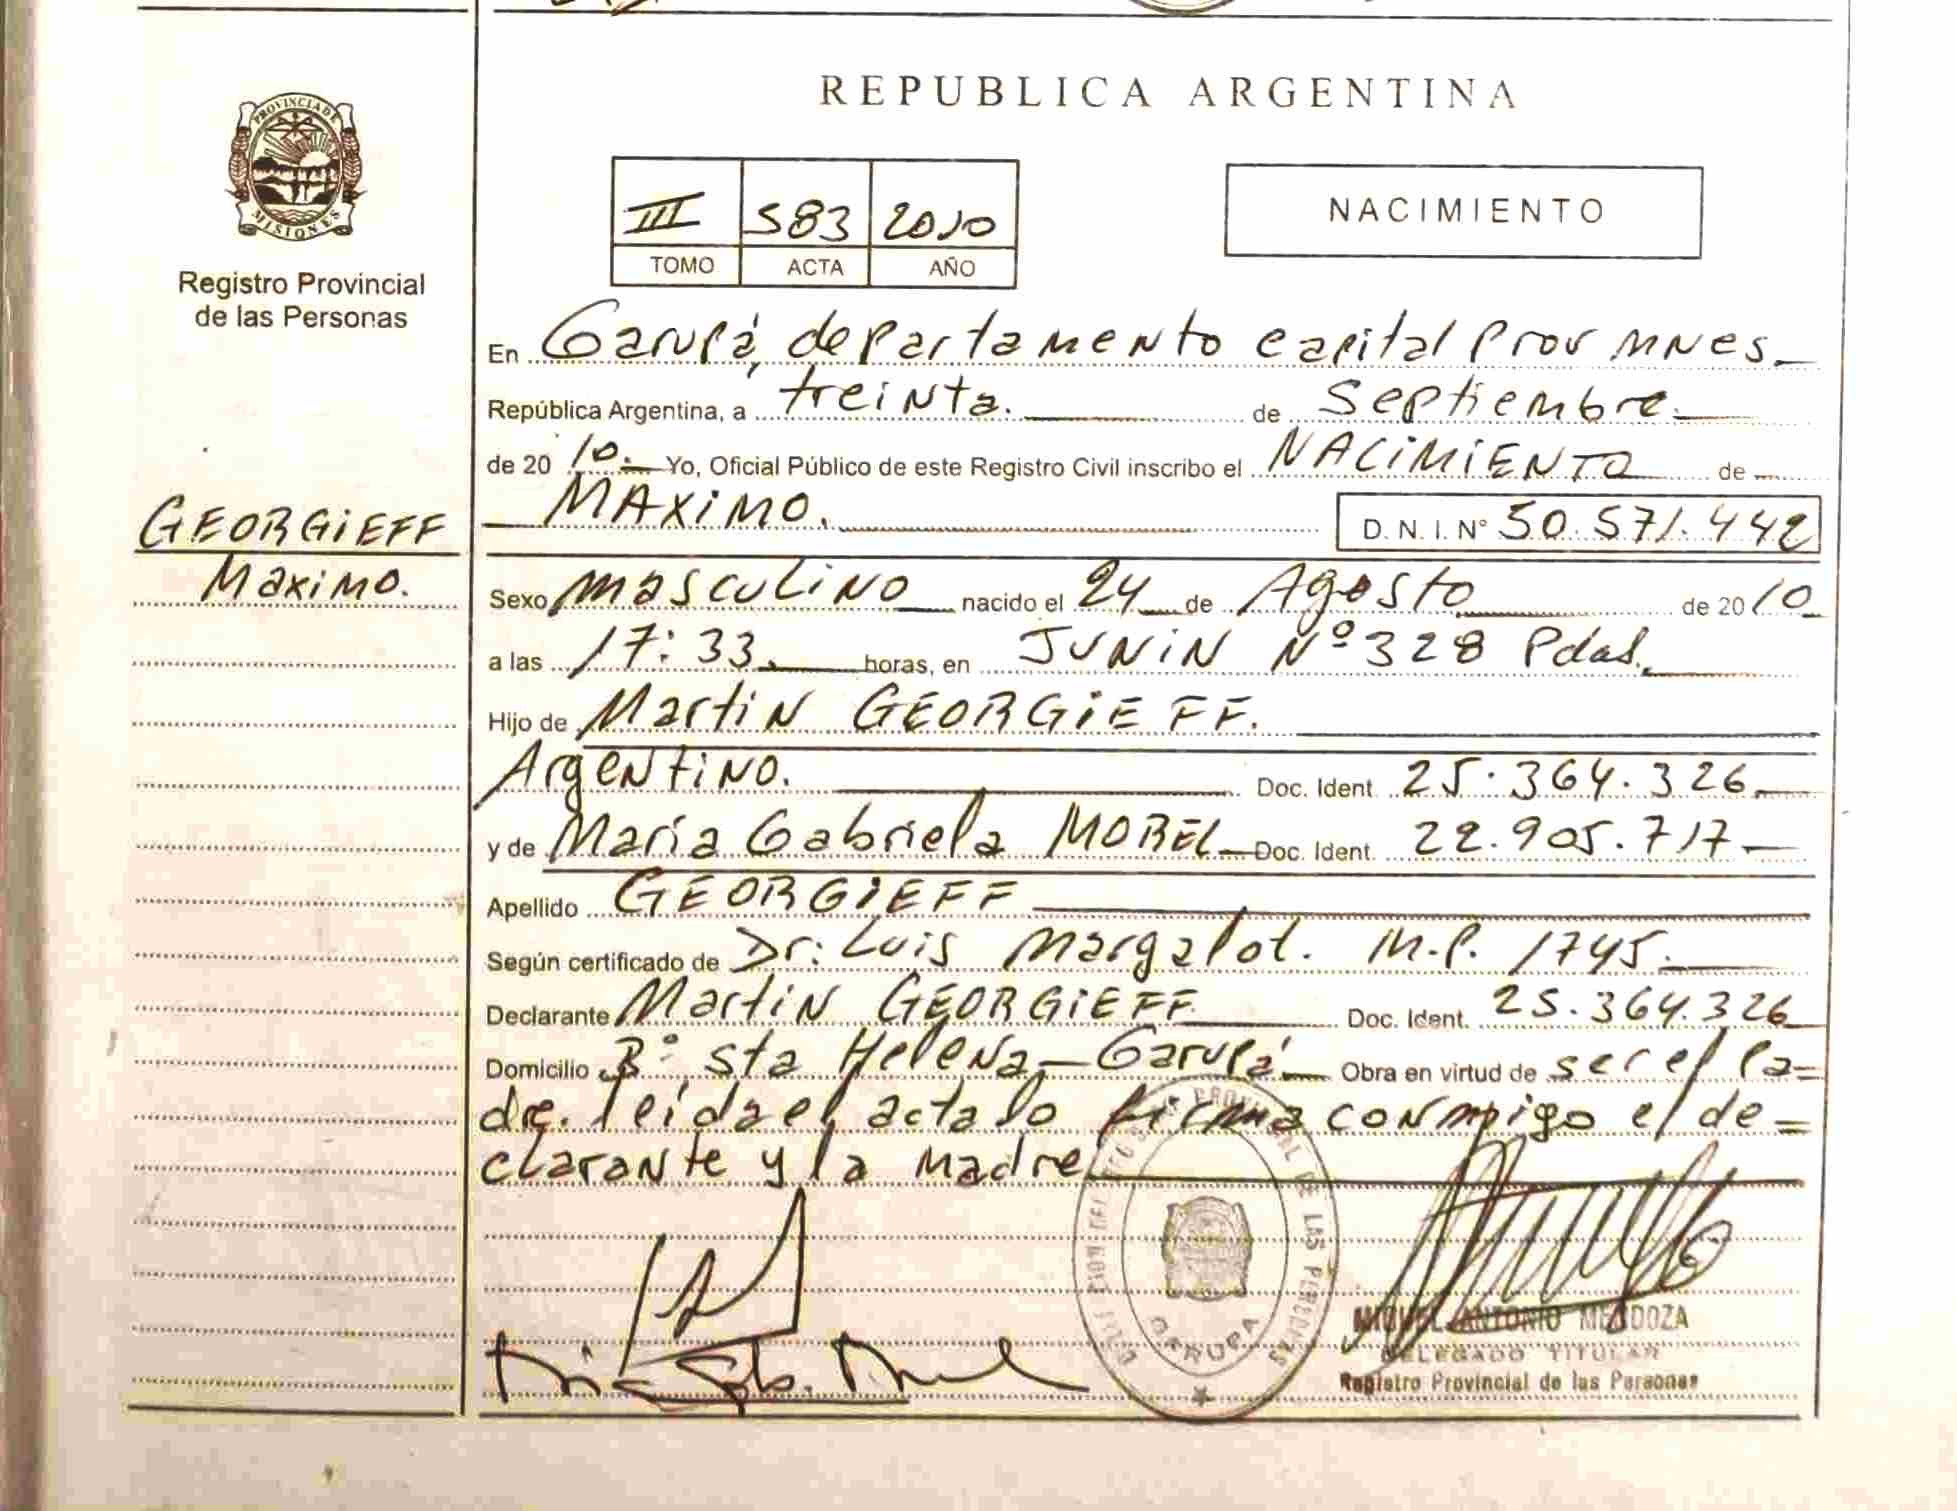 REPUBLICA ARGENTINA
PROVINCIA DE
MISIONES
Registro Provincial
de las Personas
III 583 2010
TOMO ACTA AÑO
NACIMIENTO
En Garupá, departamento capital Prov Mnes.
República Argentina, a treinta. de Septiembre.
de 20 10. Yo, Oficial Público de este Registro Civil inscribo el NACIMIENTO de
MAXIMO. D. N. I. N° 50.571.442
GEORGIEFF
Maximo.
Sexo masculino nacido el 24 de Agosto de 20 10
a las 17:33. horas, en JUNIN Nº 328 Pdas.
Hijo de Martin GEORGIEFF.
Argentino. Doc. Ident. 25.364.326
y de María Gabriela MOREL Doc. Ident. 22.905.717
Apellido GEORGIEFF
Según certificado de Dr: Luis Margalot. M.P. 1745.
Declarante Martin GEORGIEFF Doc. Ident. 25.364.326
Domicilio Bº Sta Helena - Garupá Obra en virtud de ser el pa=
dre. leida el acta lo firma conmigo el de=
clarante y la madre
GARUPA
MIGUEL ANTONIO MENDOZA
DELEGADO TITULAR
Registro Provincial de las Personas